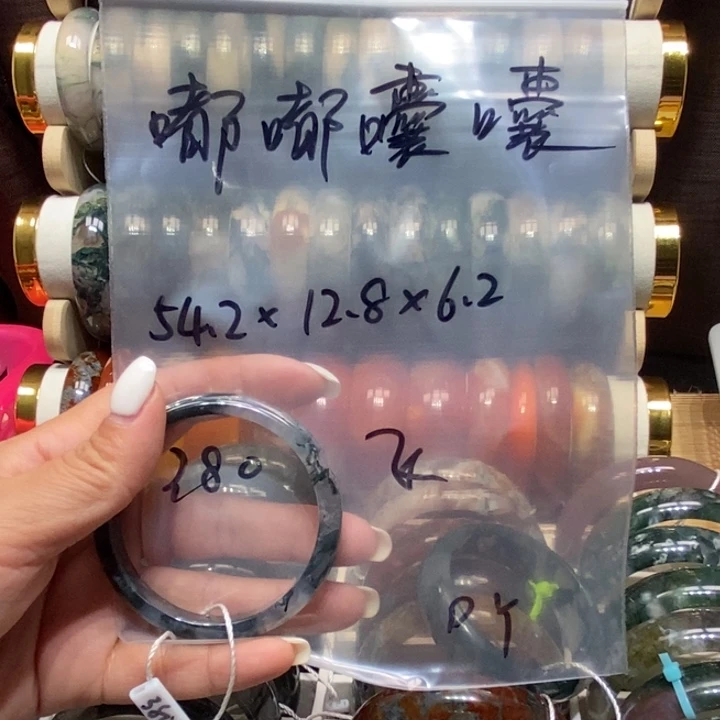 嘟嘟囔囔
54.2×12.8×6.2
280 飞
DY